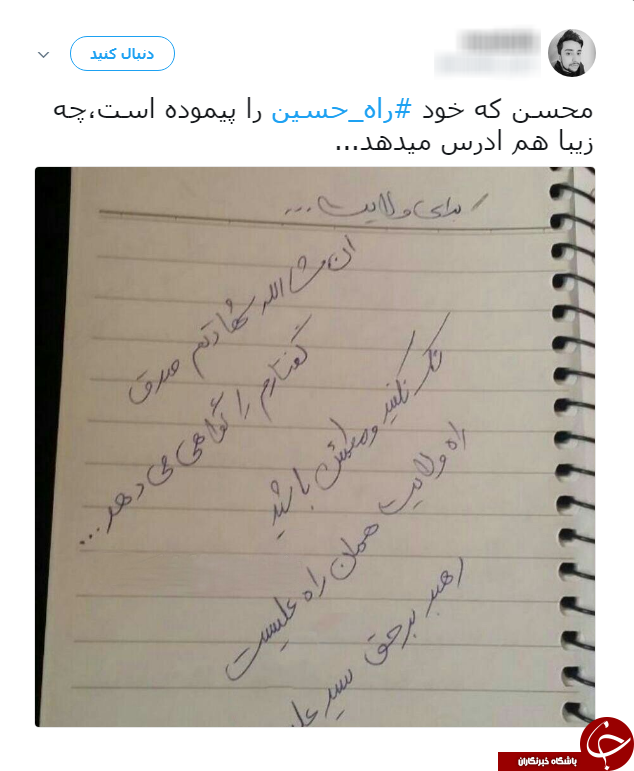 دنبال کنید
محسن که خود #راه_حسین را پیموده است،چه
زیبا هم ادرس میدهد...
برای ولایت...
ان مشاالله شهادتم صدق
گفتارم را گواهی می دهد...
شک نکنید و مطمئن باشید
راه ولایت همان راه علیست
رهبر برحق سید علی
باشگاه خبرنگاران